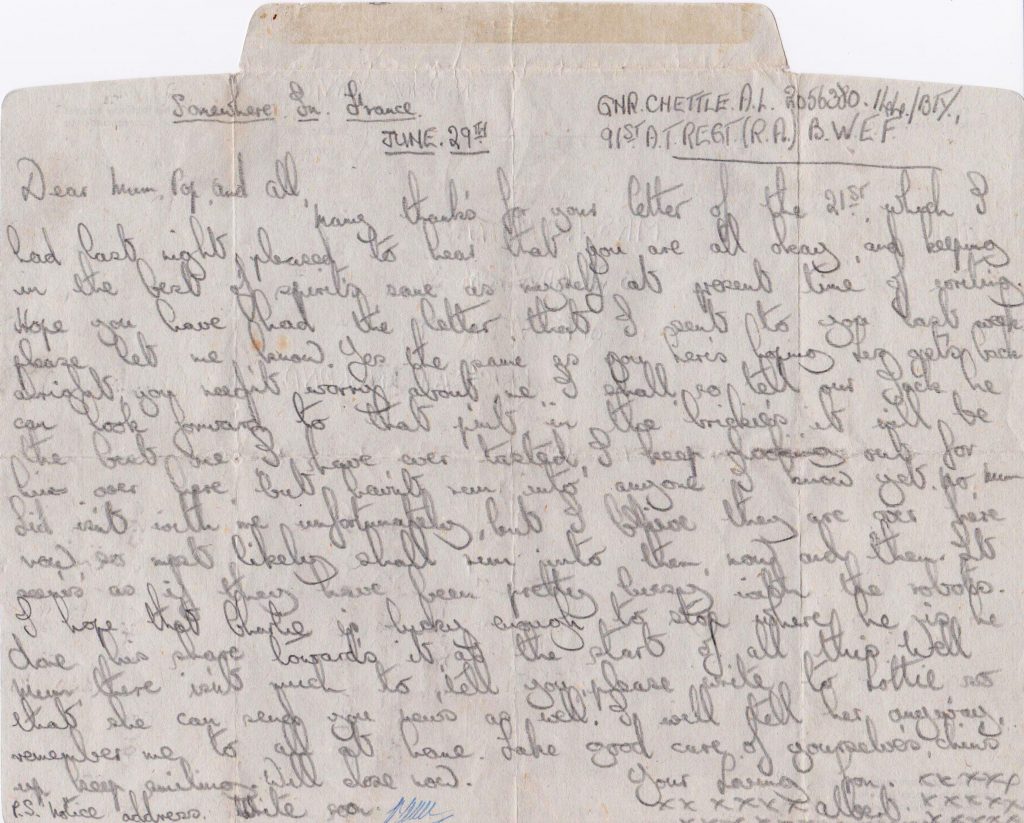 Somewhere In France.
JUNE. 29TH
GNR. CHETTLE. A.L. 2056380. H.Q./BTY.,
91ST A.T. REGT (R.A.) B.W.E.F.
Dear Mum, Pop, and all,
many thanks for your letter of the 21ST, which I
had last night, pleased to hear that you are all okay, and keeping
in the best of spirits same as myself at present time of writing.
Hope you have had the letter that I sent to you last week
please let me know. Yes the same as you here's hoping gets back
alright, you needn't worry about me I shall, so tell our Jack he
can look forward to that pint in the it will be
the best one I have ever tasted, I keep looking out for
him over here, but haven't run into anyone I know yet. No, Mum
Sid isn't with me unfortunately, but I believe they are over here
now, so most likely shall run into them, now and then. It
seems as if they have been pretty busy with the robots.
I hope that Charlie is lucky enough to stop where he is, he
done his share towards it, at the start of all this. Well
Mum there isn't much to tell you, please write to Lottie so
that she can send you news as well. I will tell her anyway,
remember me to all at home. Take good care of yourselves, chins
up keep smiling. Will close now.
Your Loving Son. xxxxx
xx xxxxx Albert. xxxxx
P.S. Notice address. Write soon.